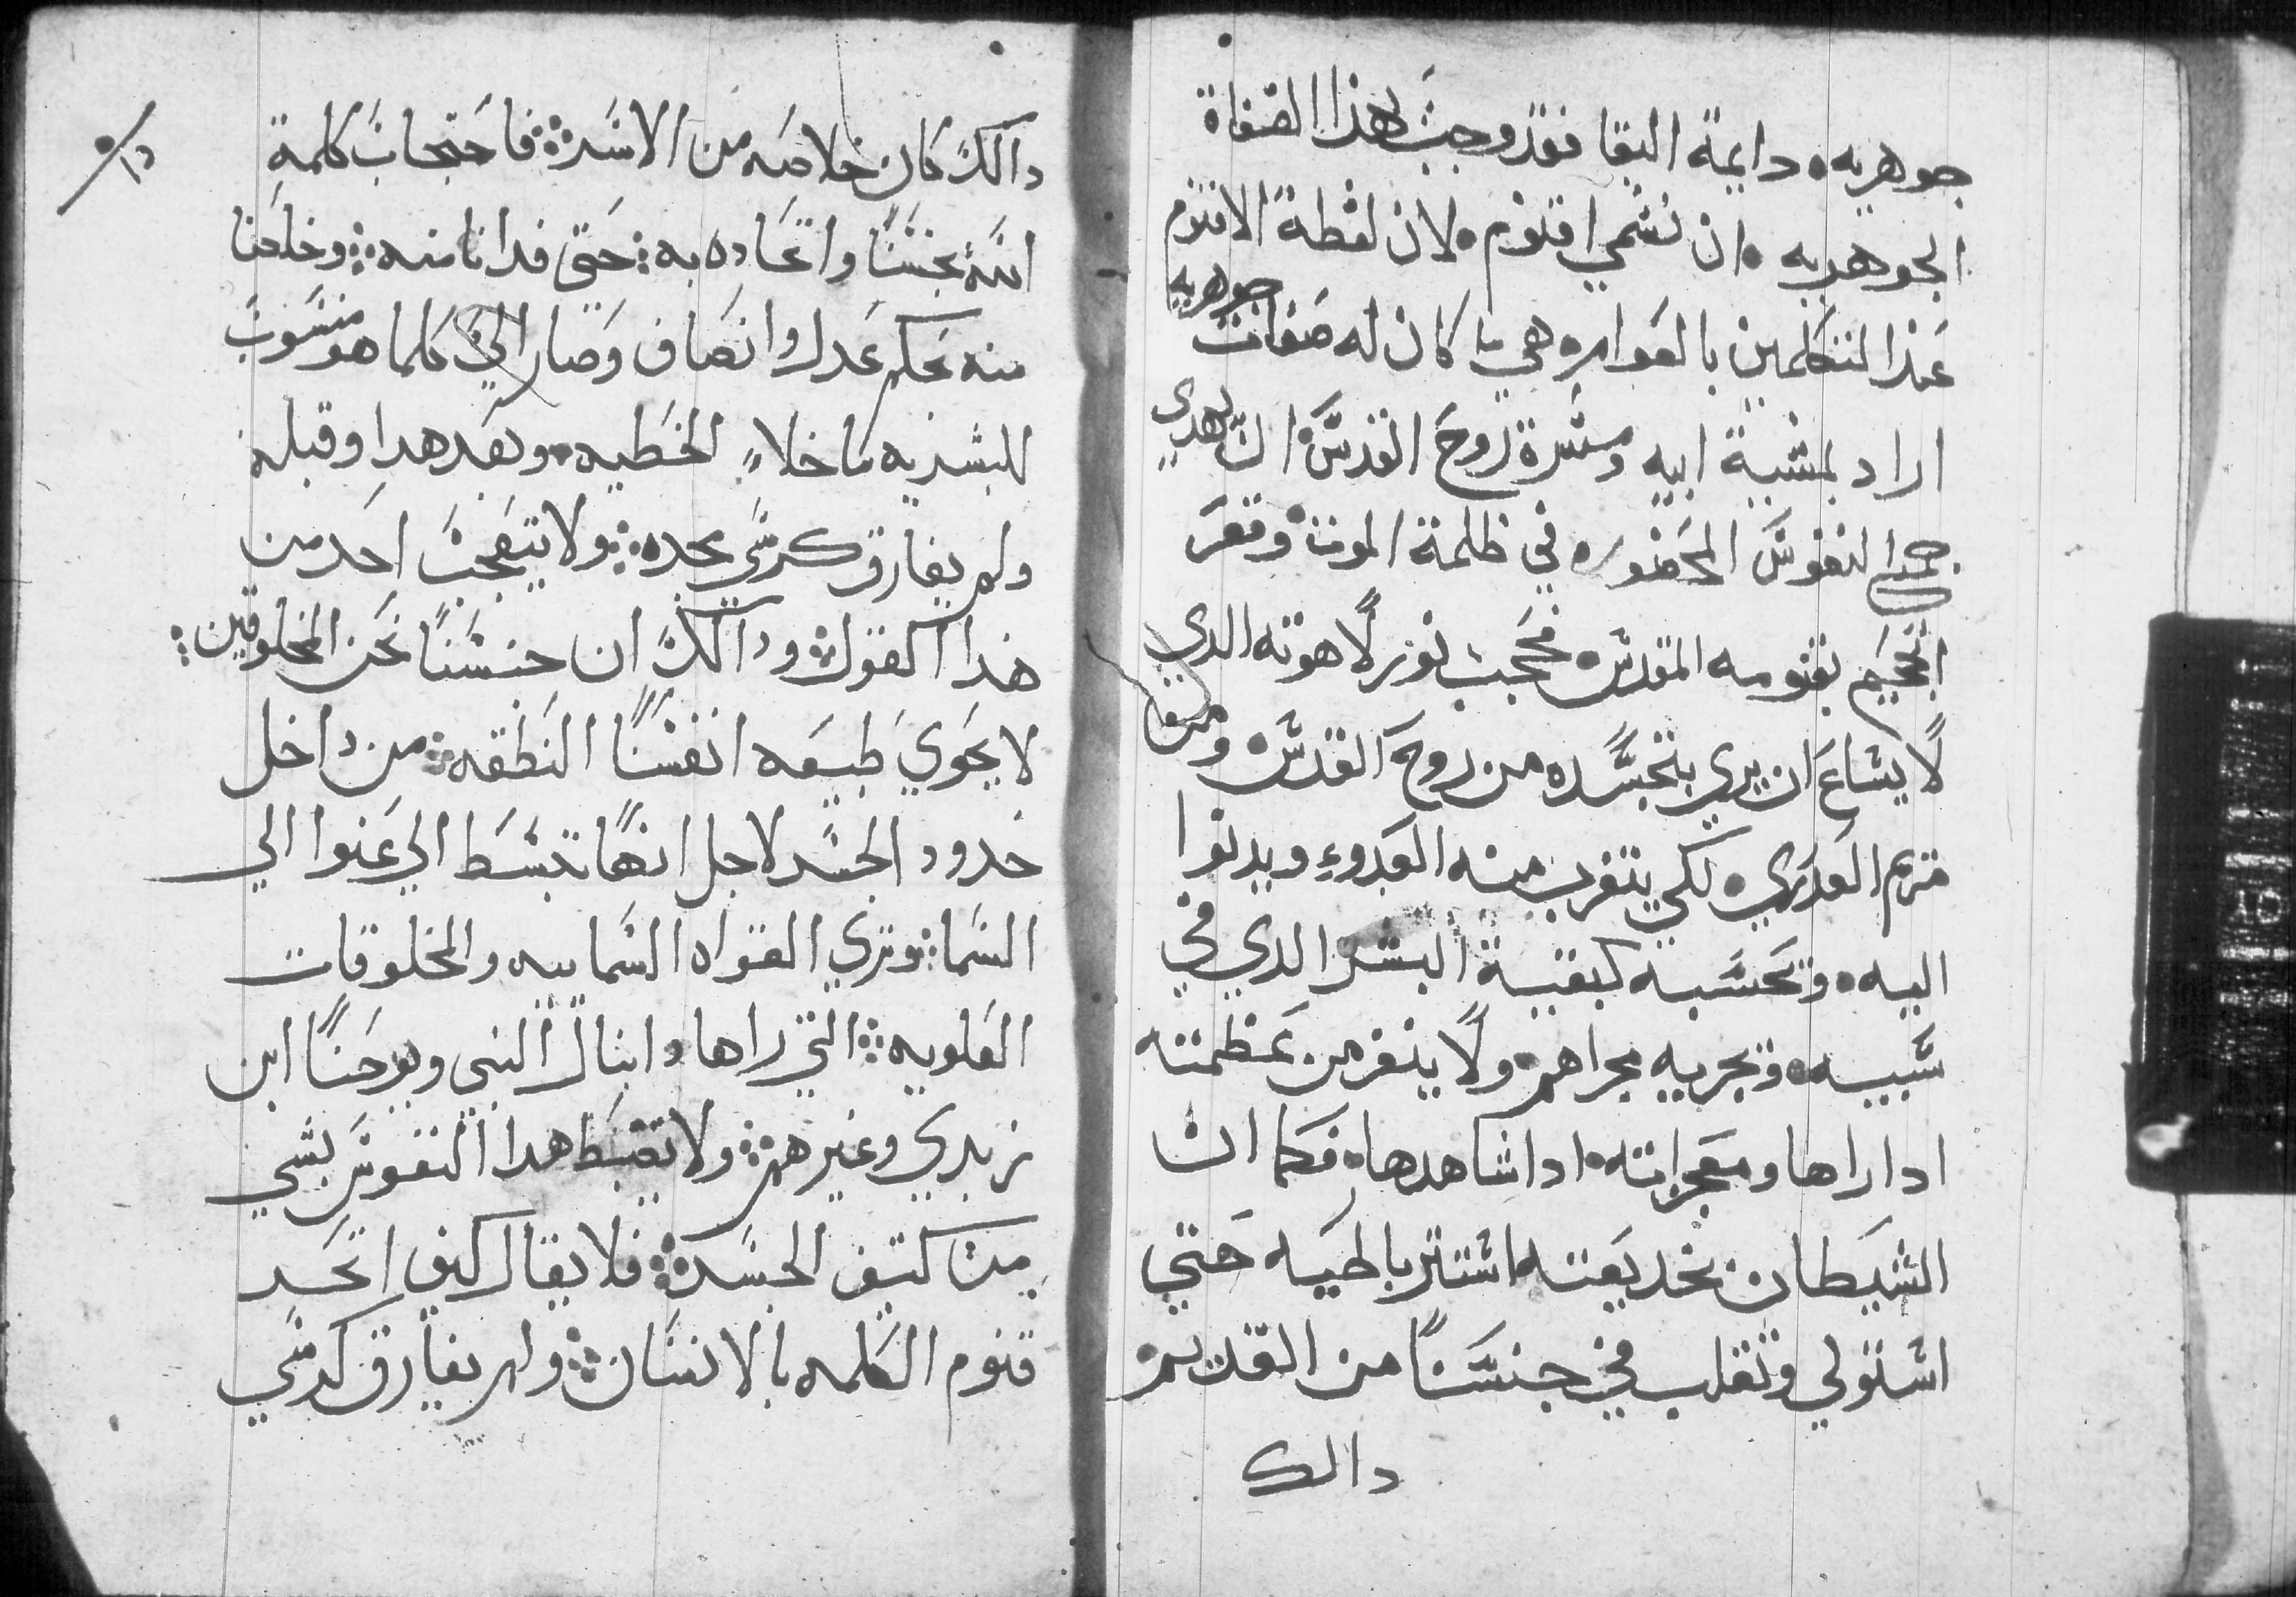 جوهريه٠ دايمة البقا فقد وجبت لهذا الصفاة
الجوهريه ٠ ان نسمي اقنوم ٠ لان لفظة الاقنوم
عند المتكلمين بالقوام وهي ما كان له صفات جوهريه
اراد بمشية ابيه ومسرة روح القدس ان يهدي
جميع النفوس المحضوره في ظلمة الموت٠ وقعر
الجحيم بقنومه المقدس٠ فحجب نور لاهوته الدي
لا يشاع ان يري بتجسده من روح القدس٠ ومن
مريم العدري٠ لكي يتقرب منه العدوء ويدنوا
اليه٠ وتحسبه كبقية البشر الدي في
سبيه٠ وتجريه مجراهم٠ ولا ينفر من عظمته
اداراها ومعجزاته٠ ادا شاهدها٠ فكما ان
الشيطان بخديعته استتر بالحيه حتي
استولي وتغلب في جنسنا من القديم٠
دالك
دالك كان خلاصه من الاسر؞ فاحتجاب كلمة
الله بجنسنا واتحاده به؞ حتي فدانا منه؞ وخلصنا
منه بحكم عدل وانصاف وصار الي كلما هو منسوب
للبشريه ما خلاء الخطيه٠ وبعد هدا وقبله
ولم يفارق كرسي مجده؞ ولا يتعجب احد من
هدا القول؞ ودالك ان جنسنا نحن المخلوقين؞
لا يحوي طبيعه انفسنا النطقه؞ من داخل
حدود الجسد لاجل انها تبسط الي عنوا الي
السما؞ وتري القواه السماييه والمخلوقات
العلويه؞ التي راها دانيال النبي ويوحنا ابن
زبدي وغيرهم؞ ولا تضبط هدا النفوس بشي
من كتيف الجسد؞ فلا يقال كيف اتحد
قنوم الكلمه بالانسان؞ ولم يفارق كرسي